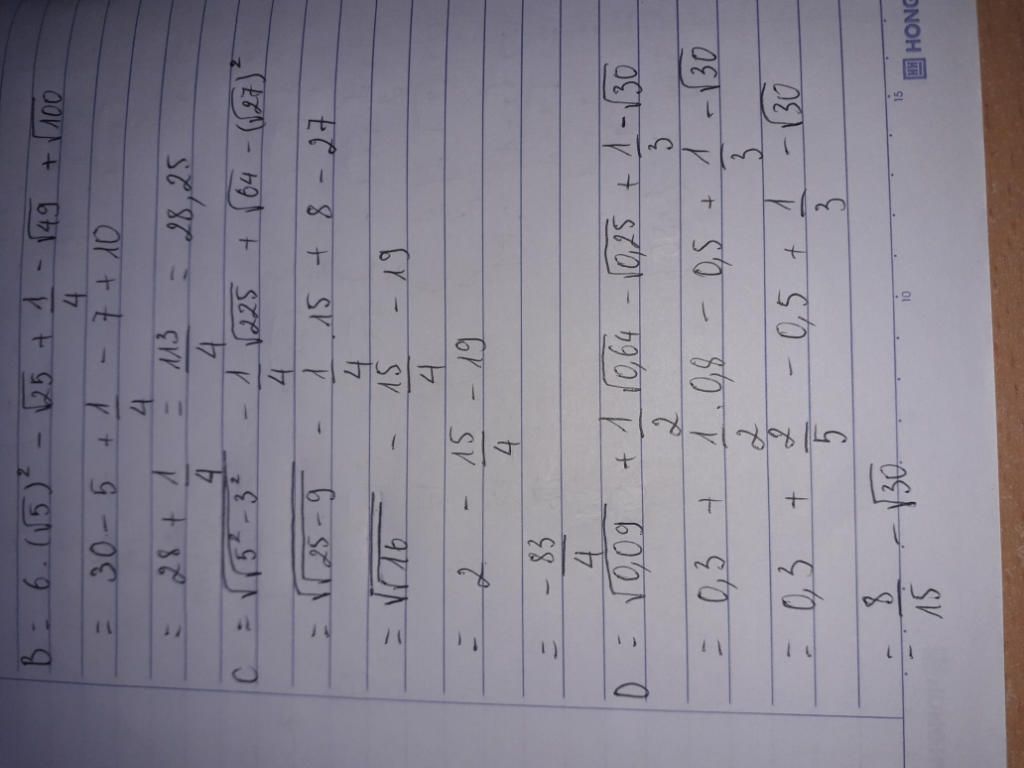 B = 6.(√5)² - √25 + 1/4 - √49 + √100
= 30 - 5 + 1/4 - 7 + 10
= 28 + 1/4 = 113/4 = 28,25
C = √√5² - 3² - 1/4 √225 + √64 - (√27)²
= √√25 - 9 - 1/4 . 15 + 8 - 27
= √√16 - 15/4 - 19
= 2 - 15/4 - 19
= - 83/4
D = √0,09 + 1/2 √0,64 - √0,25 + 1/3 - √30
= 0,3 + 1/2 . 0,8 - 0,5 + 1/3 - √30
= 0,3 + 2/5 - 0,5 + 1/3 - √30
= 8/15 - √30
10 15 HH HONG